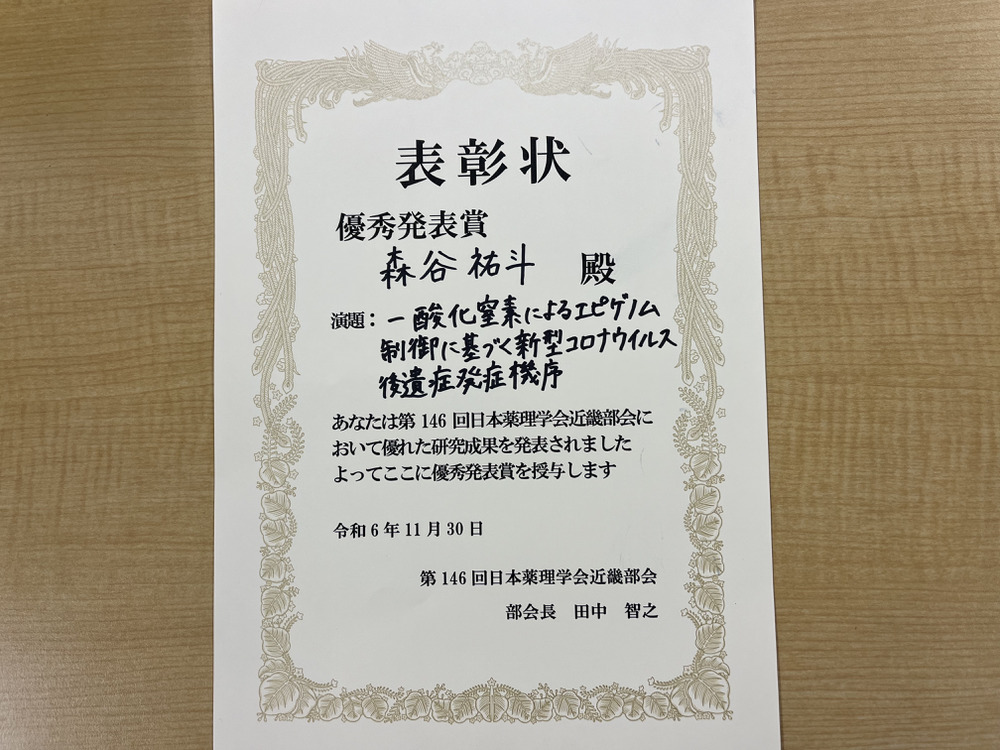 表彰状
優秀発表賞
森谷祐斗 殿
演題：一酸化窒素によるエピゲノム
制御に基づく新型コロナウイルス
後遺症発症機序
あなたは第146回日本薬理学会近畿部会に
おいて優れた研究成果を発表されました
よってここに優秀発表賞を授与します
令和6年11月30日
第146回日本薬理学会近畿部会
部会長 田中 智之